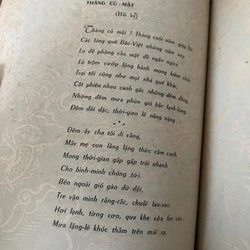 THÁNG CỦ-MẬT
(Hồi ký)
Tháng củ mật! Tháng cuối năm
Các làng quê Bắc-Việt những năm nay
Lo đề phòng của mất đã ngàn ngày
Lũ trộm cướp lộng hành mong kiếm
Trai tôi cũng như mọi nhà quê khác,
Cắt phiên nhau canh gác những đêm đông,
Những đêm mưa phùn gió bấc lạnh lùng,
Đêm dài dặc, thời gian đi lặng lặng.
Đêm ấy cha tôi đi vắng,
Mấy mẹ con lẳng lặng thức cầm canh
Mong thời-gian gấp gấp trôi nhanh
Cho bình-minh chóng tới.
Bên ngoài gió gào dữ dội,
Tre vặn mình răng-rắc, chuối lao-xao
Hơi lạnh, từng cơn, qua khe cửa lọt vào;
Mưa lặng-lẽ khóc thầm trên mái rạ.